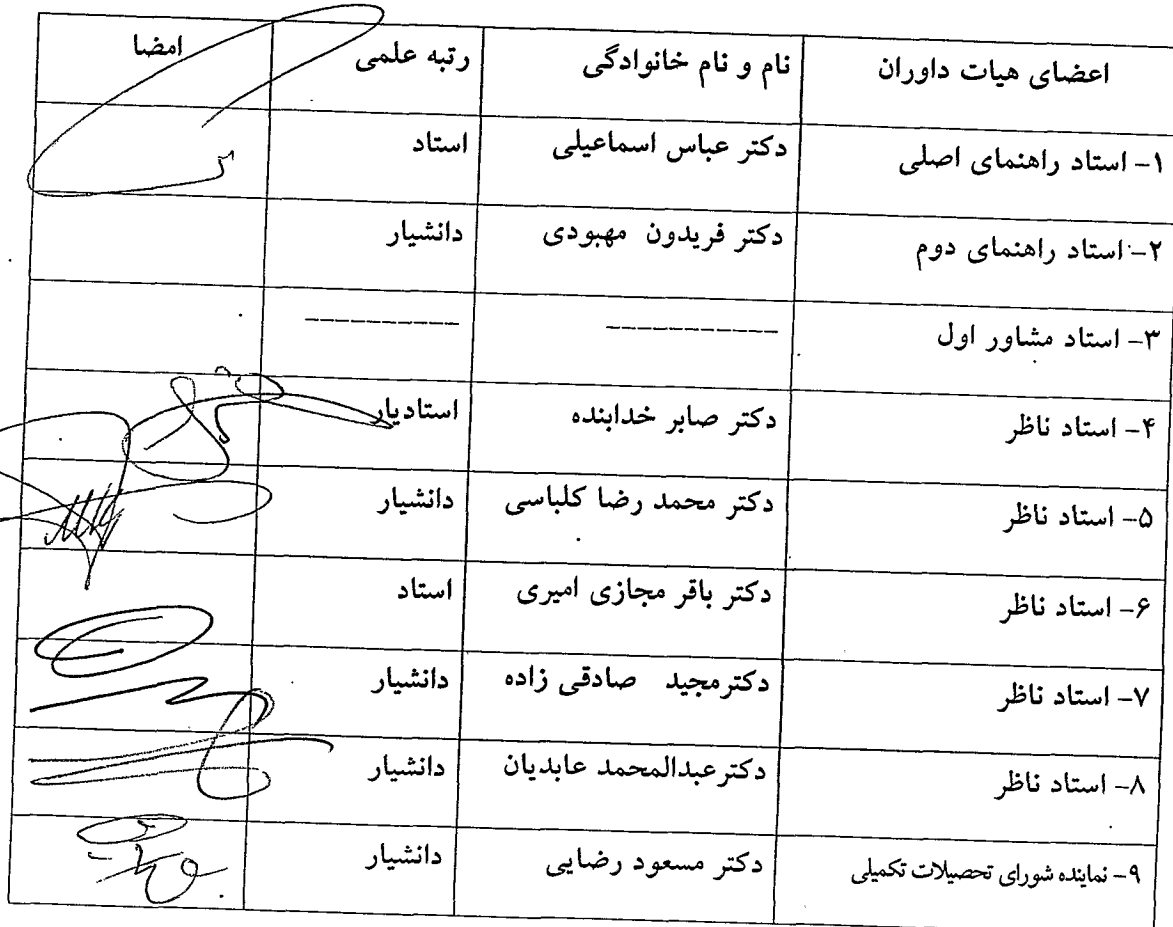 اعضای هیات داوران نام و نام خانوادگی رتبه علمی امضا
۱- استاد راهنمای اصلی دکتر عباس اسماعیلی استاد
۲- استاد راهنمای دوم دکتر فریدون مهبودی دانشیار
۳- استاد مشاور اول ----------- ----------
۴- استاد ناظر دکتر صابر خدابنده استادیار
۵- استاد ناظر دکتر محمد رضا کلباسی دانشیار
۶- استاد ناظر دکتر باقر مجازی امیری استاد
۷- استاد ناظر دکترمجید صادقی زاده دانشیار
۸- استاد ناظر دکترعبدالمحمد عابدیان دانشیار
۹- نماینده شورای تحصیلات تکمیلی دکتر مسعود رضایی دانشیار